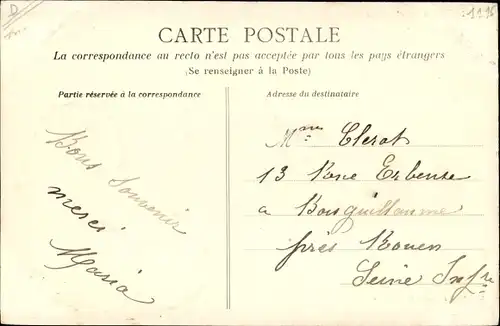 CARTE POSTALE
La correspondance au recto n'est pas acceptée par tous les pays étrangers
(Se renseigner à la Poste)
Partie réservée à la correspondance
Adresse du destinataire
Bons Souvenir
merci
Maria
Mme Clerot
13 Rue
a
près Rouen
Seine Infre